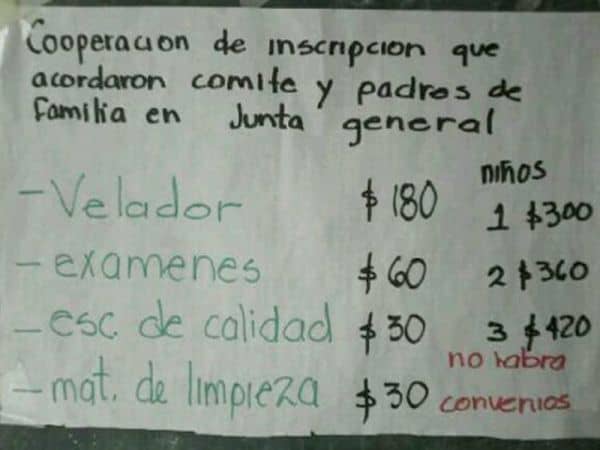 Cooperacion de inscripcion que
acordaron comite y padres de
familia en Junta general
niños
- Velador $180 1 $300
- examenes $60 2 $360
- esc. de calidad $30 3 $420
no habra
- mat. de limpieza $30 convenios